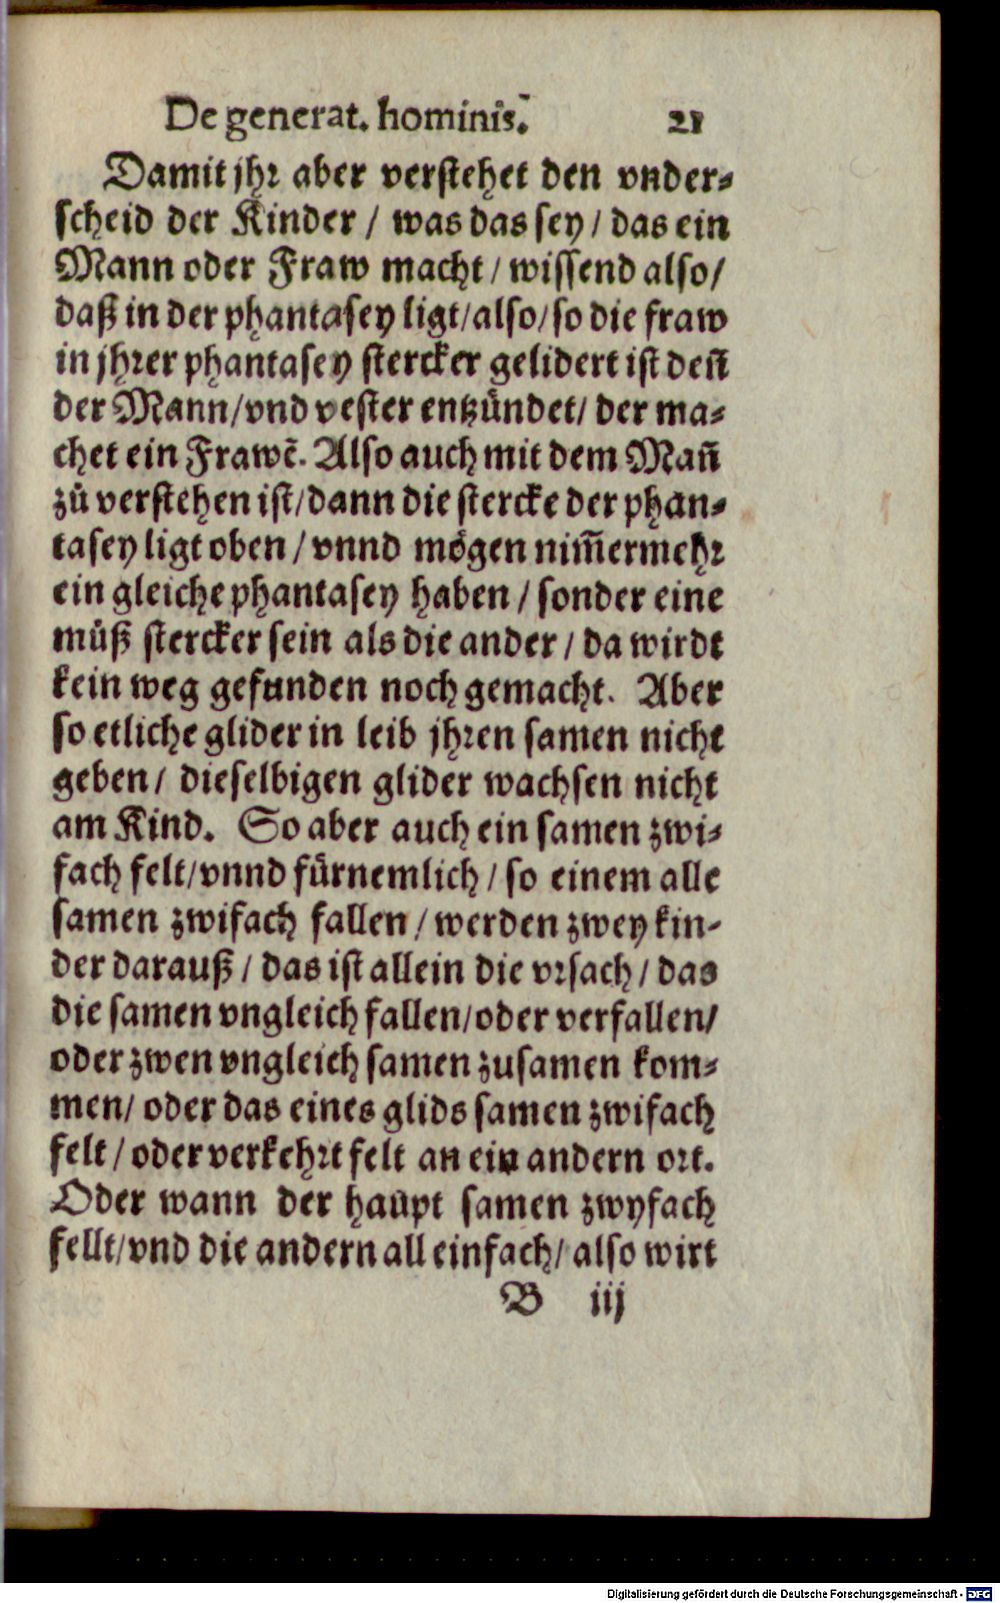 De generat. hominis. 21
Damit jhr aber verstehet den vnder-
scheid der Kinder / was das sey / das ein
Mann oder Fraw macht / wissend also /
daß in der phantasey ligt / also / so die fraw
in jhrer phantasey stercker gelidert ist deñ
der Mann / vnd vester entzündet / der ma-
chet ein Frawẽ. Also auch mit dem Mañ
zů verstehen ist / dann die stercke der phan-
tasey ligt oben / vnnd mögen nim̃ermehr
ein gleiche phantasey haben / sonder eine
můß stercker sein als die ander / da wirdt
kein weg gefunden noch gemacht. Aber
so etliche glider in leib jhren samen nicht
geben / dieselbigen glider wachsen nicht
am Kind. So aber auch ein samen zwi-
fach felt / vnnd fürnemlich / so einem alle
samen zwifach fallen / werden zwey kin-
der darauß / das ist allein die vrsach / das
die samen vngleich fallen / oder verfallen /
oder zwen vngleich samen zusamen kom-
men / oder das eines glids samen zwifach
felt / oder verkehrt felt an ein andern ort.
Oder wann der haupt samen zwyfach
fellt / vnd die andern all einfach / also wirt
B iij
Digitalisierung gefördert durch die Deutsche Forschungsgemeinschaft - DFG